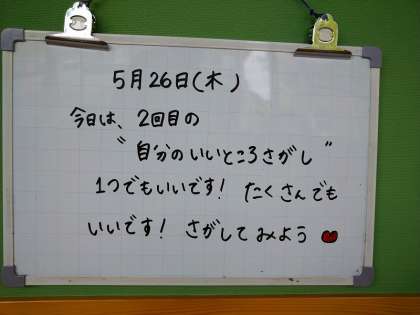 5月26日(木)
今日は、2回目の
〝自分のいいところさがし〟
1つでもいいです! たくさんでも
いいです! さがしてみよう